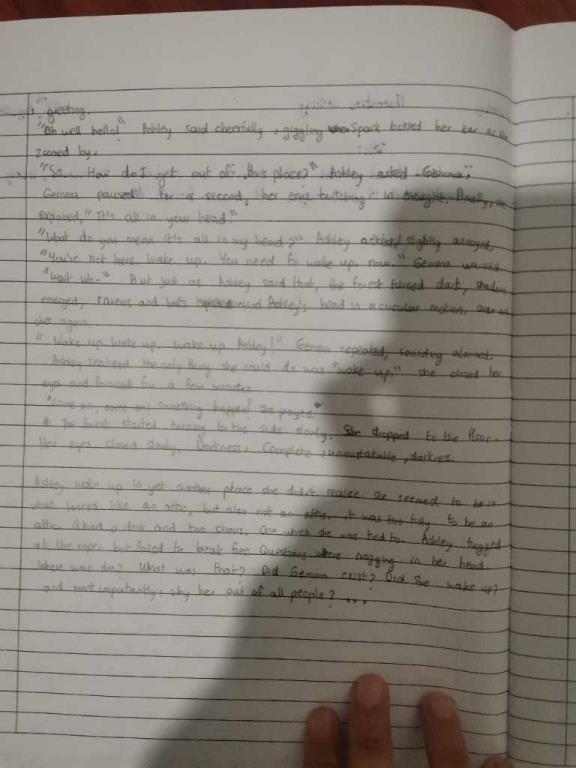 greeting.
"Oh well hello!" Ashley said cheerfully, giggling Spark tickled her ear as
zoomed by.
"So... How do I get out of this place?" Ashley asked Gemma.
Gemma paused for a second, her ears twitching in thought. Finally, she
explained, "It's all in your head."
"What do you mean it's all in my head?" Ashley asked, slightly annoyed,
"You're not here, wake up. You need to wake up now." Gemma warned
"Wait wh-" But just as Ashley said that, the forest turned dark, shadows
emerged, ravens and bats Ashley's head in a circular motion, over and
over again.
"Wake up, wake up, wake up Ashley!" Gemma repeated, sounding alarmed.
Ashley realised the only thing she could do was "wake up." she closed her
eyes and focused for a few
"Come on, come on! something happen! She prayed."
The forest started turning to the side slowly. She dropped to the floor.
Her eyes closed slowly. Darkness. Complete, unmistakable, darkness.
Ashley woke up in yet another place she didn't realise. She seemed to be in
what looked like an attic, but also not an attic. it was too tidy to be an
attic. it had a desk and two chairs. One which she was tied to. Ashley tugged
at the ropes but failed to break free. Questions were nagging in her head.
Where was she? What was that? Did Gemma exist? Did she wake up?
and most importantly, why her out of all people? ...